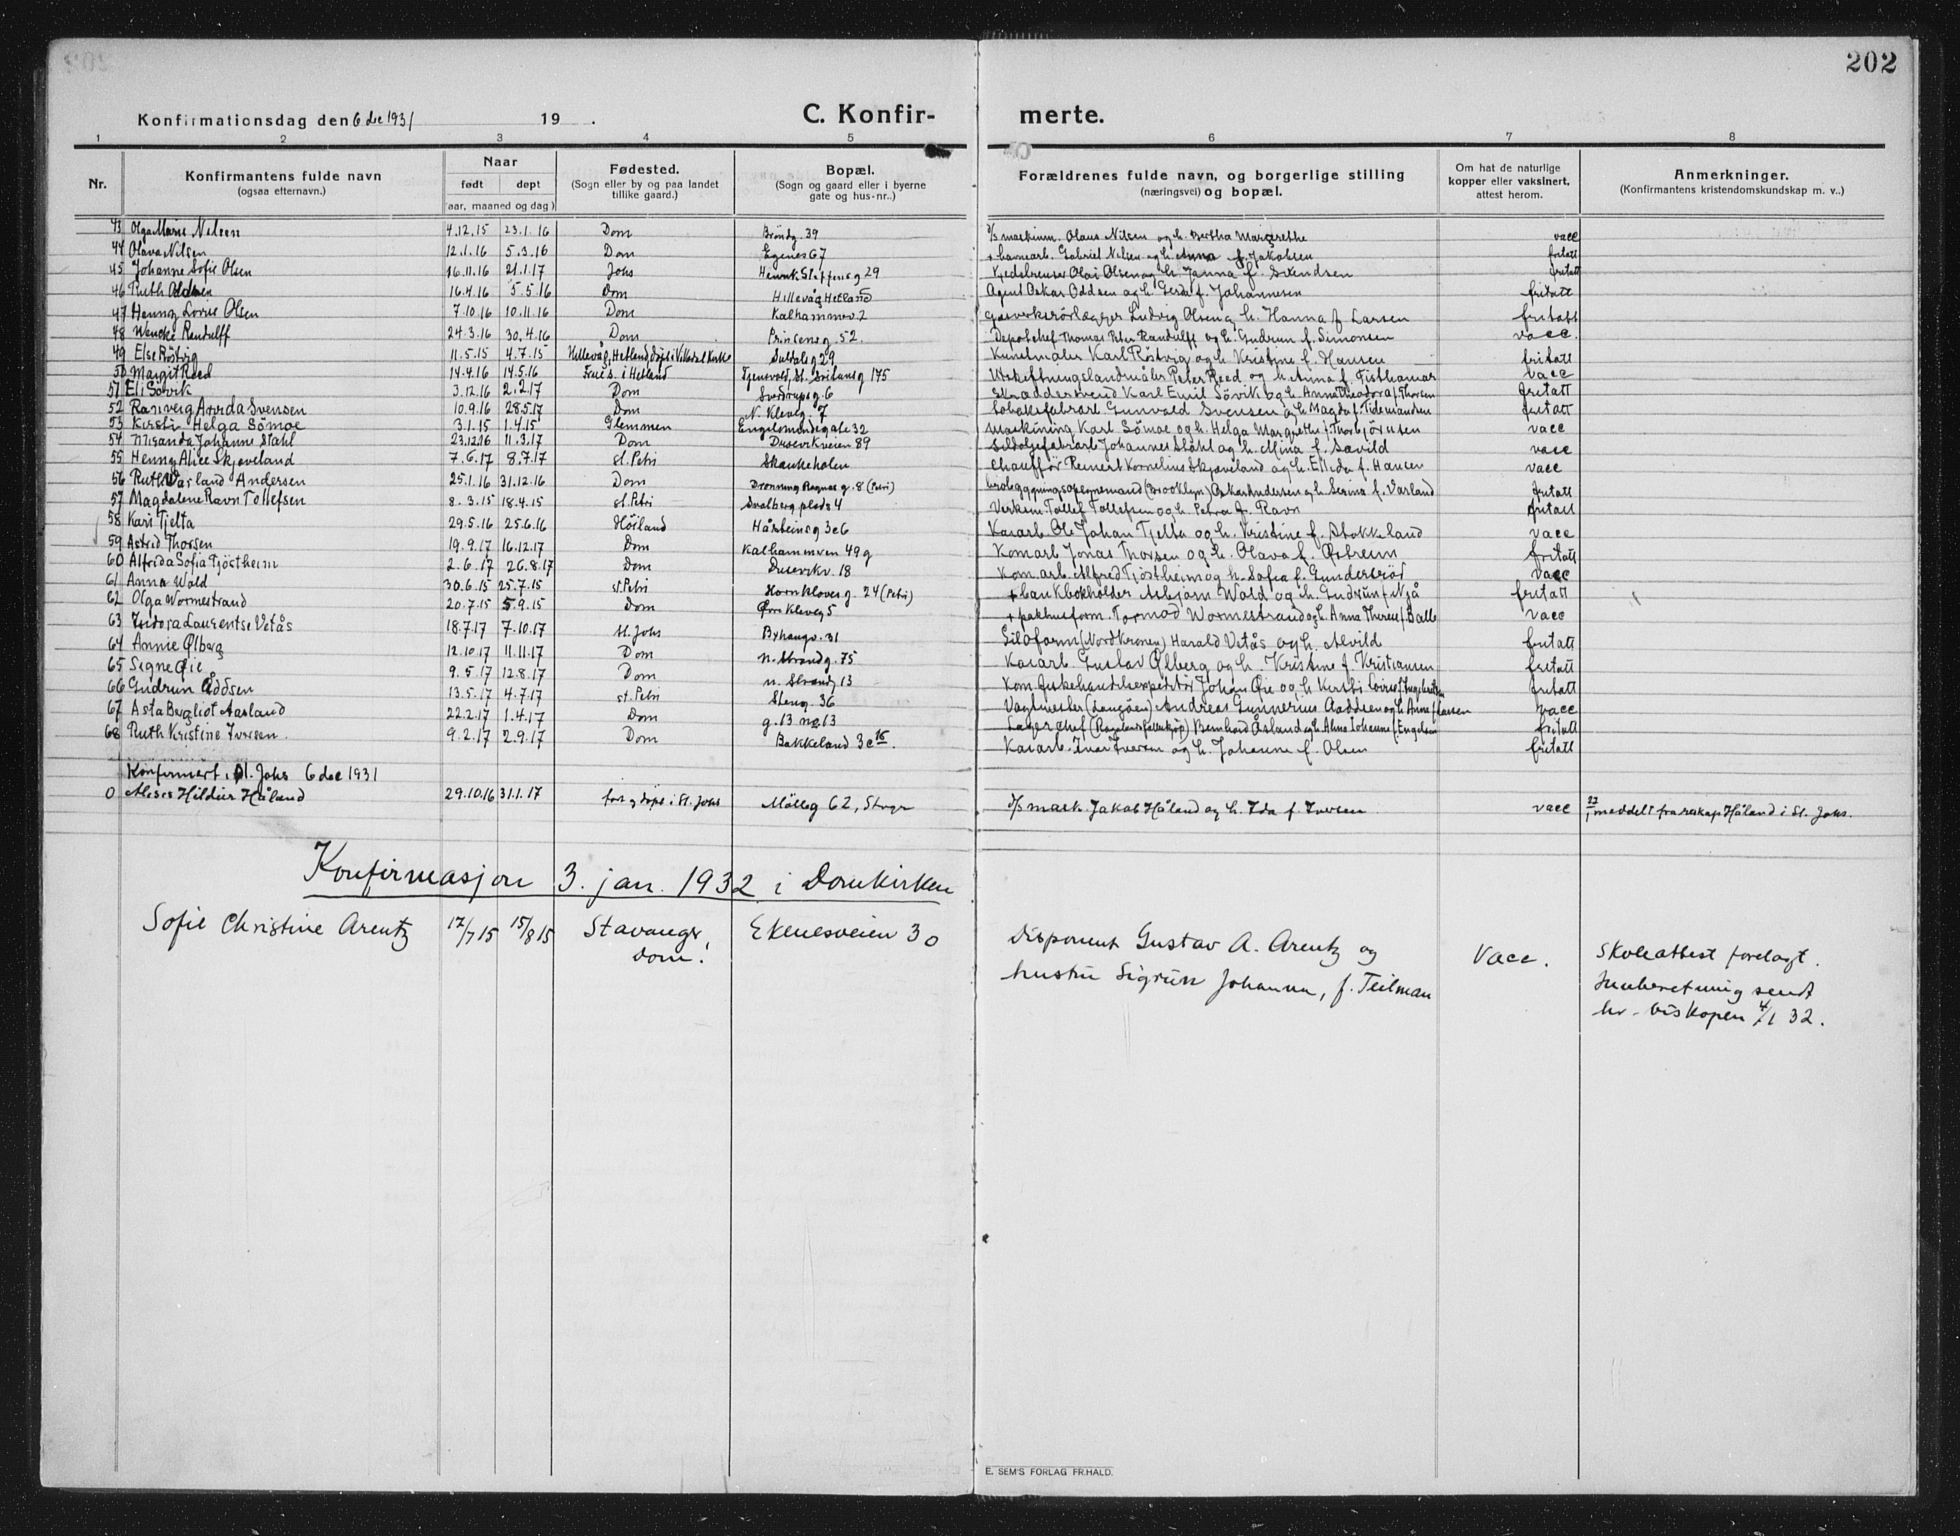 202
Konfirmationsdag den 6 dec 1931 19 .
C. Konfir-
merte.
1 2 3 4 5 6 7 8
Nr.
Konfirmantens fulde navn
(ogsaa efternavn.)
Naar
født døpt
aar, maaned og dag)
Fødested.
(Sogn eller by og paa landet
tillike gaard.)
Bopæl.
(Sogn og gaard eller i byerne
gate og hus-nr..)
Forældrenes fulde navn, og borgerlige stilling
(næringsvei) og bopæl.
Om hat de naturlige
kopper eller vaksinert,
attest herom.
Anmerkninger.
(Konfirmantens kristendomskundskap m. v..)
43 Olga Marie Nilsen 4.12.15 23.1.16 Dom Bröndg. 39 Olaus Nilsen og h. Bertha Margrethe vacc
44 Olava Nilsen 12.1.16 5.3.16 Dom Egenes 67 + havnearb. Gabriel Nilsen og h. Anna f. Jakobsen fritatt
45 Johanne Sofie Olsen 16.11.16 21.1.17 Johs Henrik Steffensg 29 Kjedelrenser Olai Olsen og h. Janna f. Svendsen fritatt
46 Ruth Oddsen 16.4.16 5.5.16 Dom Hillevåg Hetland Agent Oskar Oddsen og h. Gerda f. Johannesen fritatt
47 Henny Lovise Olsen 7.10.16 10.11.16 Dom Kalhammerv. 2 Gasverksrörlægger Ludvig Olsen og h. Hanna f Larsen fritatt
48 Wenche Randulff 24.3.16 30.4.16 Dom Prinsensg. 52. Depotchef Thomas Peter Randulff og h. Gudrun f. Simonsen vacc.
49 Else Röstvig 11.5.15 4.7.15 Hillevåg, Hetland, döpt i Kirke Suldalsg 29 Kunstmaler Karl Röstvig og h. Kristine f. Hansen fritatt
50 Margit Reed 14.4.16 14.5.16 Frue s. i Hetland Tjensvold, 175 Utskiftningslandmåler Peter Reed og h. Anna f. Tisthamar vacc
51 Eli Sövik 3.12.16 2.2.17 Dom Sverdrupsg. 6 Skræddersvend Karl Emil Sövik og h. Anna Theodora f. Thorsen fritatt
52 Ranveig Arvida Svensen 10.9.16 28.5.17 Dom N. Klevg. 7 Tobakkfabrarb. Gunvald Svensen og h. Magda f. Tidemandsen fritatt
53 Kirsti Helga Sömoe 3.1.15 1.4.15 Glemmen Engelsmindegate 32 Maskining Karl Sömoe og h. Helga Margrethe f. Thorbjörnsen vacc
54 Nisanda Johanne Stahl 23.12.16 11.3.17 Dom Dusevikveien 89 Sildoljefabrarb Johannes Stahl og h. Mina f. Sævild vacc
55 Henny Alice Skjæveland 7.6.17 8.7.17 st. Petri Skankeholen Chaufför Reinert Kornelius Skjæveland og h. Ellida f. Hansen vacc
56 Ruth Varland Andersen 25.1.16 31.12.16 Dom Dronning Ragnas g. 8 (Petri) (Brooklyn) Oskar Andersen og h. Serina f. Varland fritatt
57 Magdalene Ravn Tollefsen 8.3.15 18.4.15 st. Petri Svalberg plads 4 Verksm. Tollef Tollefsen og h. Petra f. Ravn fritatt
58 Kari Tjelta 29.5.16 25.6.16 Höiland Hårteinsg 3 c 6 Kaiarb. Ole Johan Tjelta og h. Kristine f. Stokkeland vacc
59 Astrid Thorsen 19.9.17 16.12.17 Dom Kalhammven 49 g Komarb Jonas Thorsen og h. Olava f. Östrem fritatt
60 Alfrida Sofia Tjöstheim 2.6.17 26.8.17 Dom Dusevikv. 18 Kom arb. Alfred Tjöstheim og h. Sofia f. Gunderröd vacc
61 Anna Wold 30.6.15 25.7.15 st. Petri Hornkloves g. 24 (Petri) + bankbokholder Asbjörn Wold og h. Gudrun f. Njå fritatt
62 Olga Wormestrand 20.7.15 5.9.15 Dom Övre Kleveg 5 + pakhusform. Tormod Wormestrand og h. Anna Therese f. Balle vacc
63 Isidora Laurentse Vetås 18.7.17 7.10.17 st. Johs Byhaugv. 31 Siloform (Nordkronen) Harald Vetås og h. Alvild fritatt
64 Annie Ølberg 12.10.17 11.11.17 Dom n. Strandg. 75 Kaiarb Gustav Ølberg og h. Kristine f. Kristiansen fritatt
65 Signe Øie 9.5.17 12.8.17 Dom n. Strandg 13 Kom. fiskehandlexpeditör Johan Øie og h. Kirsti Lovise f. Ingebretsen fritatt
66 Gudrun Åddsen 13.5.17 4.7.17 st. Petri Steng. 36 Vagtmester Andreas Gunnerius Aaddsen og h. Anne f. Larsen vacc
67 Asta Bergliot Aarsland 22.2.17 1.4.17 Dom g. 13 no 13 Lagerchef Bernhard Årsland og h. Alma Johanne f. Engelsen fritatt
68 Ruth Kristine Iversen. 9.2.17 2.9.17 Dom Bakkeland 3 c 15. Kaiarb. Ivar Iversen og h. Johanne f. Olsen fritatt
Konfirmert i St. Johs 6 dec 1931
0 Hildur Håland 29.10.16 31.1.17 fört og döpt i St. Johs Mölleg 62, Stvgr D/S mask. Jakob Håland og h. Ida f. Iversen vacc meddelt Håland i St. Johs.
Konfirmasjon 3. jan. 1932 i Domkirken
Sofie Christine Arentz 17/7 15 15/8 15 Stavanger, Ekenesveien 30 Disponent Gustav A. Arentz og Vacc. Skoleattest forelagt.
Dom. hustru Sigrun Johanna, f. Teilman Innberetning sendt
hr. biskopen 4/1 32.
E. SEM'S FORLAG FR.HALD.